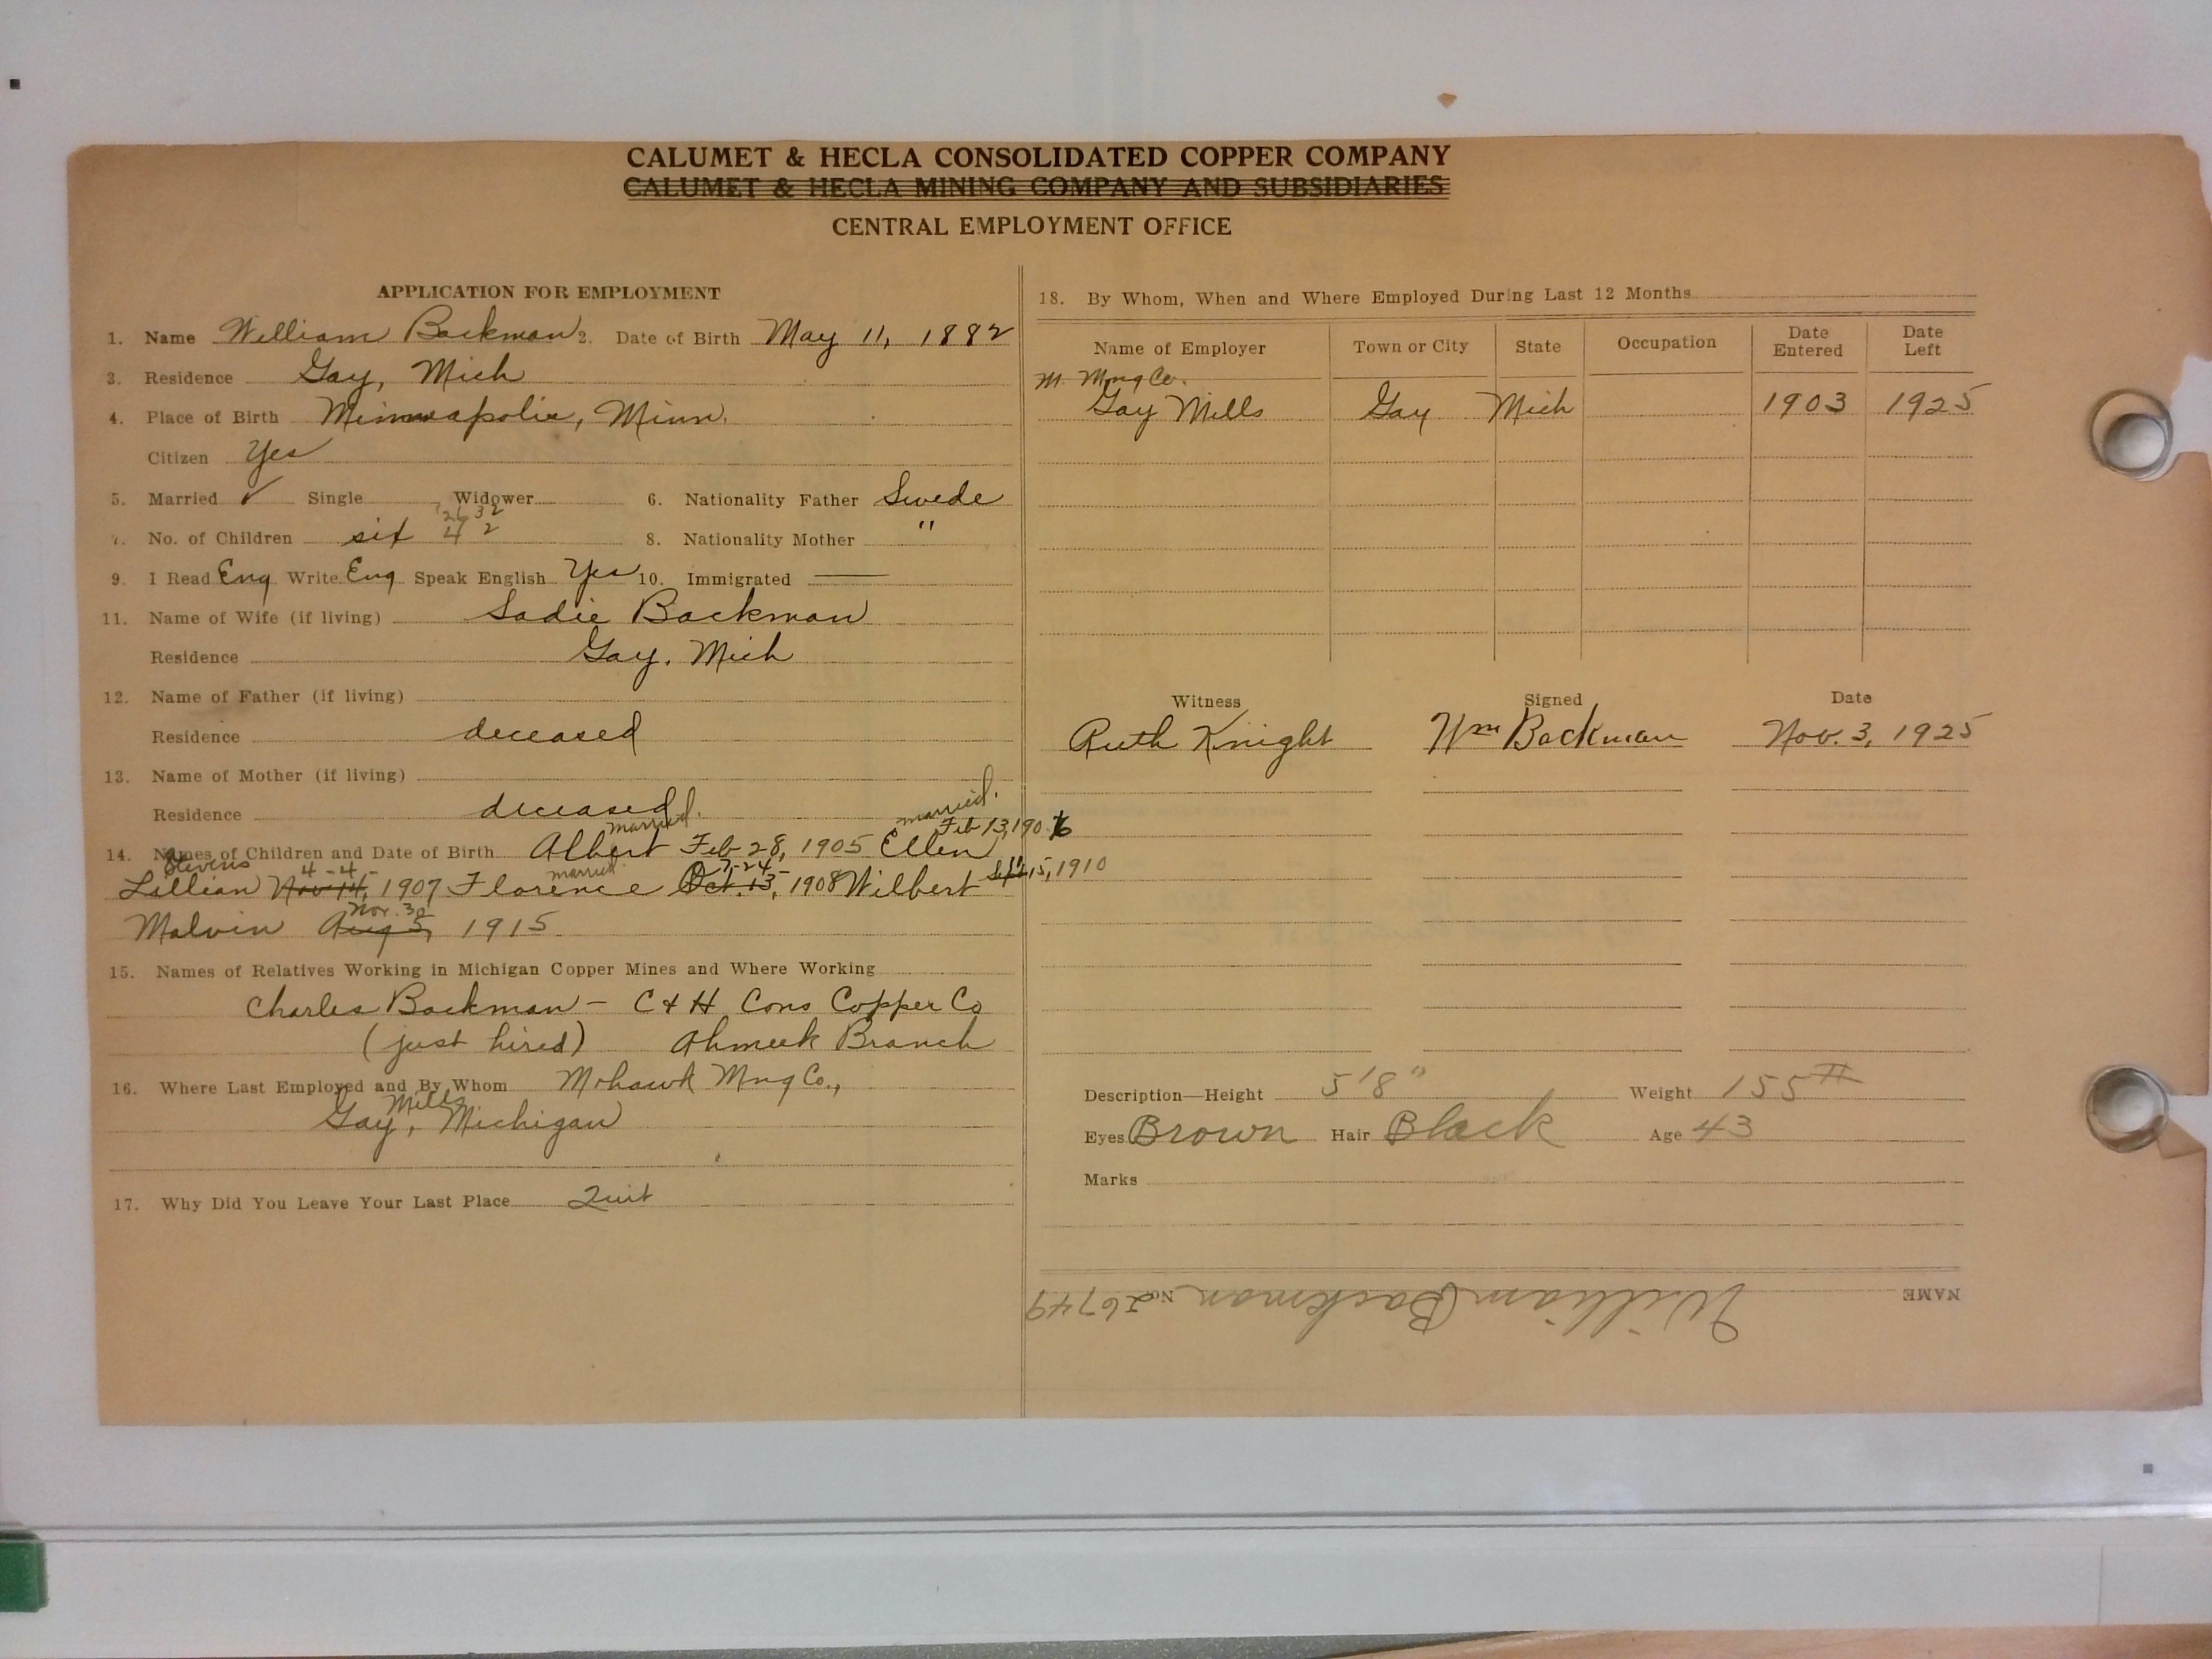 CALUMET & HECLA CONSOLIDATED COPPER COMPANY
CALUMET & HECLA MINING COMPANY AND SUBSIDIARIES
CENTRAL EMPLOYMENT OFFICE
APPLICATION FOR EMPLOYMENT
1. Name William Backman 2. Date of Birth May 11, 1882
3. Residence Gay, Mich
4. Place of Birth Minneapolis, Minn.
Citizen Yes
5. Married ✓ Single Widower 6. Nationality Father Swede
7. No. of Children six 4 2 8. Nationality Mother "
9. I Read Eng Write Eng Speak English Yes 10. Immigrated —
11. Name of Wife (if living) Sadie Backman
Residence Gay, Mich
12. Name of Father (if living)
Residence deceased
13. Name of Mother (if living)
Residence deceased
married. married.
14. Names of Children and Date of Birth Albert Feb 28, 1905 Ellen Feb 13, 1906
Stevens 4-4- married 7-24-
Lillian Nov 14, 1907 Florence Oct. 13, 1908 Wilbert 15, 1910
Nov. 30
Malvin Aug 5, 1915
15. Names of Relatives Working in Michigan Copper Mines and Where Working
Charles Backman - C & H Cons Copper Co
(just hired) Ahmeek Branch
16. Where Last Employed and By Whom Mohawk Mng Co.,
Mills
Gay, Michigan
17. Why Did You Leave Your Last Place Quit
18. By Whom, When and Where Employed During Last 12 Months
Name of Employer Town or City State Occupation Date Entered Date Left
M. Mng Co.
Gay Mills Gay Mich 1903 1925
Witness Signed Date
Ruth Knight Wm Backman Nov. 3, 1925
Description—Height 5'8" Weight 155 #
Eyes Brown Hair Black Age 43
Marks
NAME William Backman No. 26749